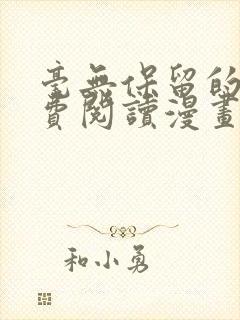 毫無保留的
費閱讀漫畫
和小勇